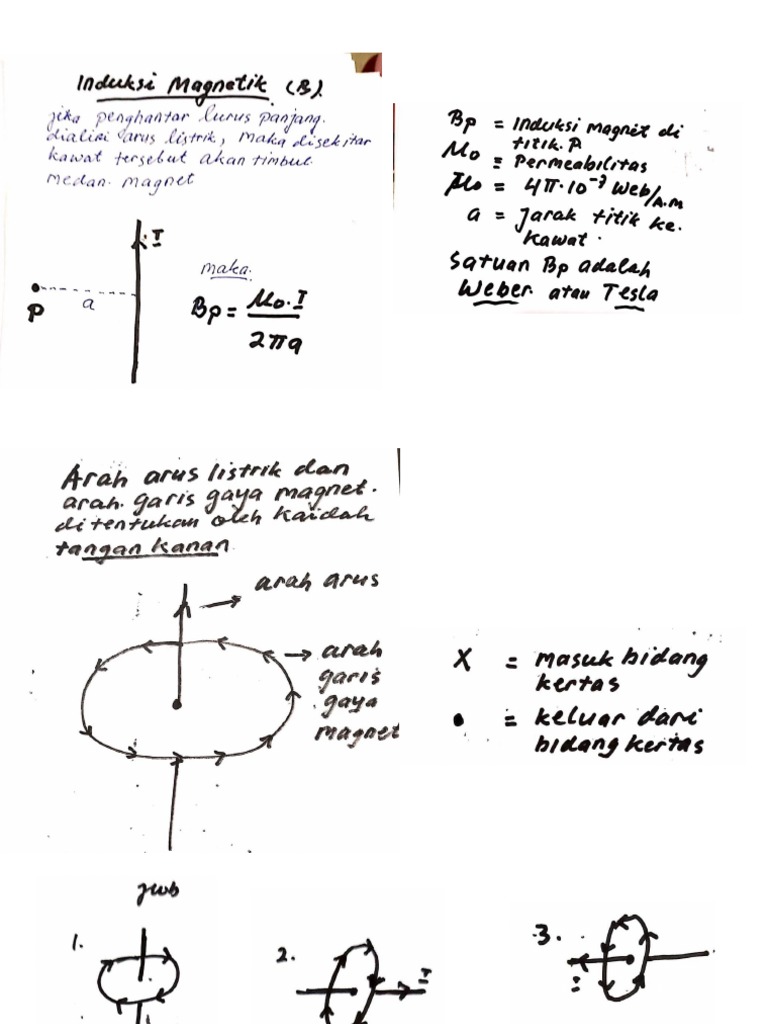 Induksi Magnetik (B).
jika penghantar lurus panjang.
dialiri arus listrik, maka disekitar
kawat tersebut akan timbul.
medan. magnet
I
P
a
maka.
Bp = Mo.I
2πa
Bp = Induksi magnet di
titik. P
Mo = Permeabilitas
Mo = 4π.10⁻⁷ Web/A.m
a = Jarak titik ke.
kawat.
Satuan Bp adalah
Weber atau Tesla
Arah arus listrik dan
arah. garis gaya magnet.
ditentukan oleh kaidah
tangan kanan
arah arus
arah
garis
gaya
magnet
X = masuk bidang
kertas
• = keluar dari
bidang kertas
jwb
1.
2.
I
3.
I